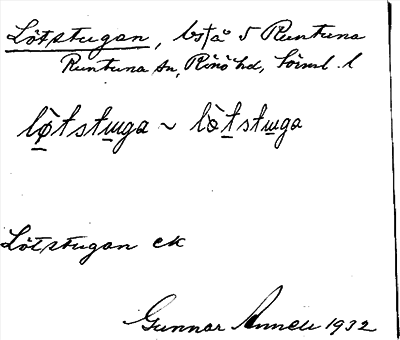 Lötstugan, bst å 5 Runtuna
Runtuna sn, Rönö hd, Sörml. l
lø̠tstɯga ~ lòt̠stɯga
Lötstugan ek
Gunnar 1932